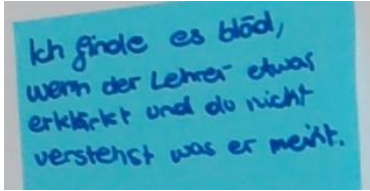 Ich finde es blöd,
wenn der Lehrer etwas
erklärkt und du nicht
verstehst was er meint.